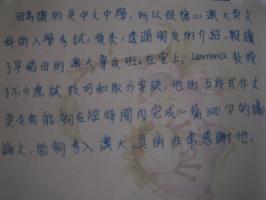 因為讀的是中文中學，所以很擔心澳大英文
科的入學考試，後來，透過朋友的介紹，報讀
了早稻田的澳大專攻班。在堂上，Lawrence教授
了不少應試技巧和取分要訣，他的互授式作文
更令我能夠在短時間內完成一篇300字的議
論文，能夠考入澳大真的非常感謝他。